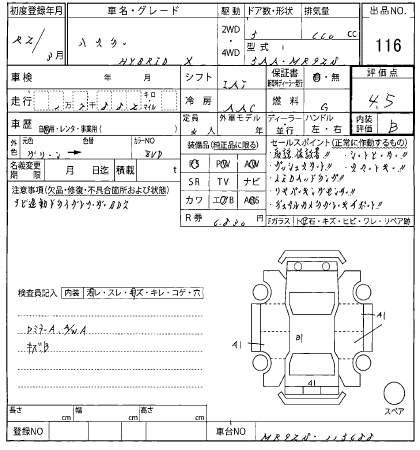 初度登録年月 車名・グレード 駆動 ドア数・形状 排気量 出品 NO.
R2/ 8月 ハスラー HYBRID X 2WD・4WD 5 660 cc 116
型式 5AA-MR92S
車検 年 月 シフト IAT 保証書 有・無 評価点
走行 キロ マイル 冷房 AAC 燃料 G 4.5
車歴 自家用・レンタ・事業用( ) 定員 4人 外車モデル 年 ディーラー 並行 ハンドル 左・右 内装評価 B
外色 元色 色替 カラーNO
グリーン
名義変更期限 月 日迄 積載 t
装備品(純正品に限る)
PS PW AW
SR TV ナビ
カワ エアB ABS
R券 6,830円
セールスポイント(正常に作動するもの)
取説 保証書!! シートヒーター!!
プッシュスタート!!
LEDヘッドランプ!!
リヤパーキングセンサー!!
デュアルカメラブレーキサポート!!
Fガラス トビ石・キズ・ヒビ・ワレ・リペア跡
注意事項(欠品・修復・不具合箇所および状態)
ナビ連動ドライブレコーダー
検査員記入 内装 汚レ・スレ・キズ・キレ・コゲ・穴
キズB
A1
A1
B1
A1
スペア
長さ cm 幅 cm 高さ cm
登録NO 車台NO MR92S-113688